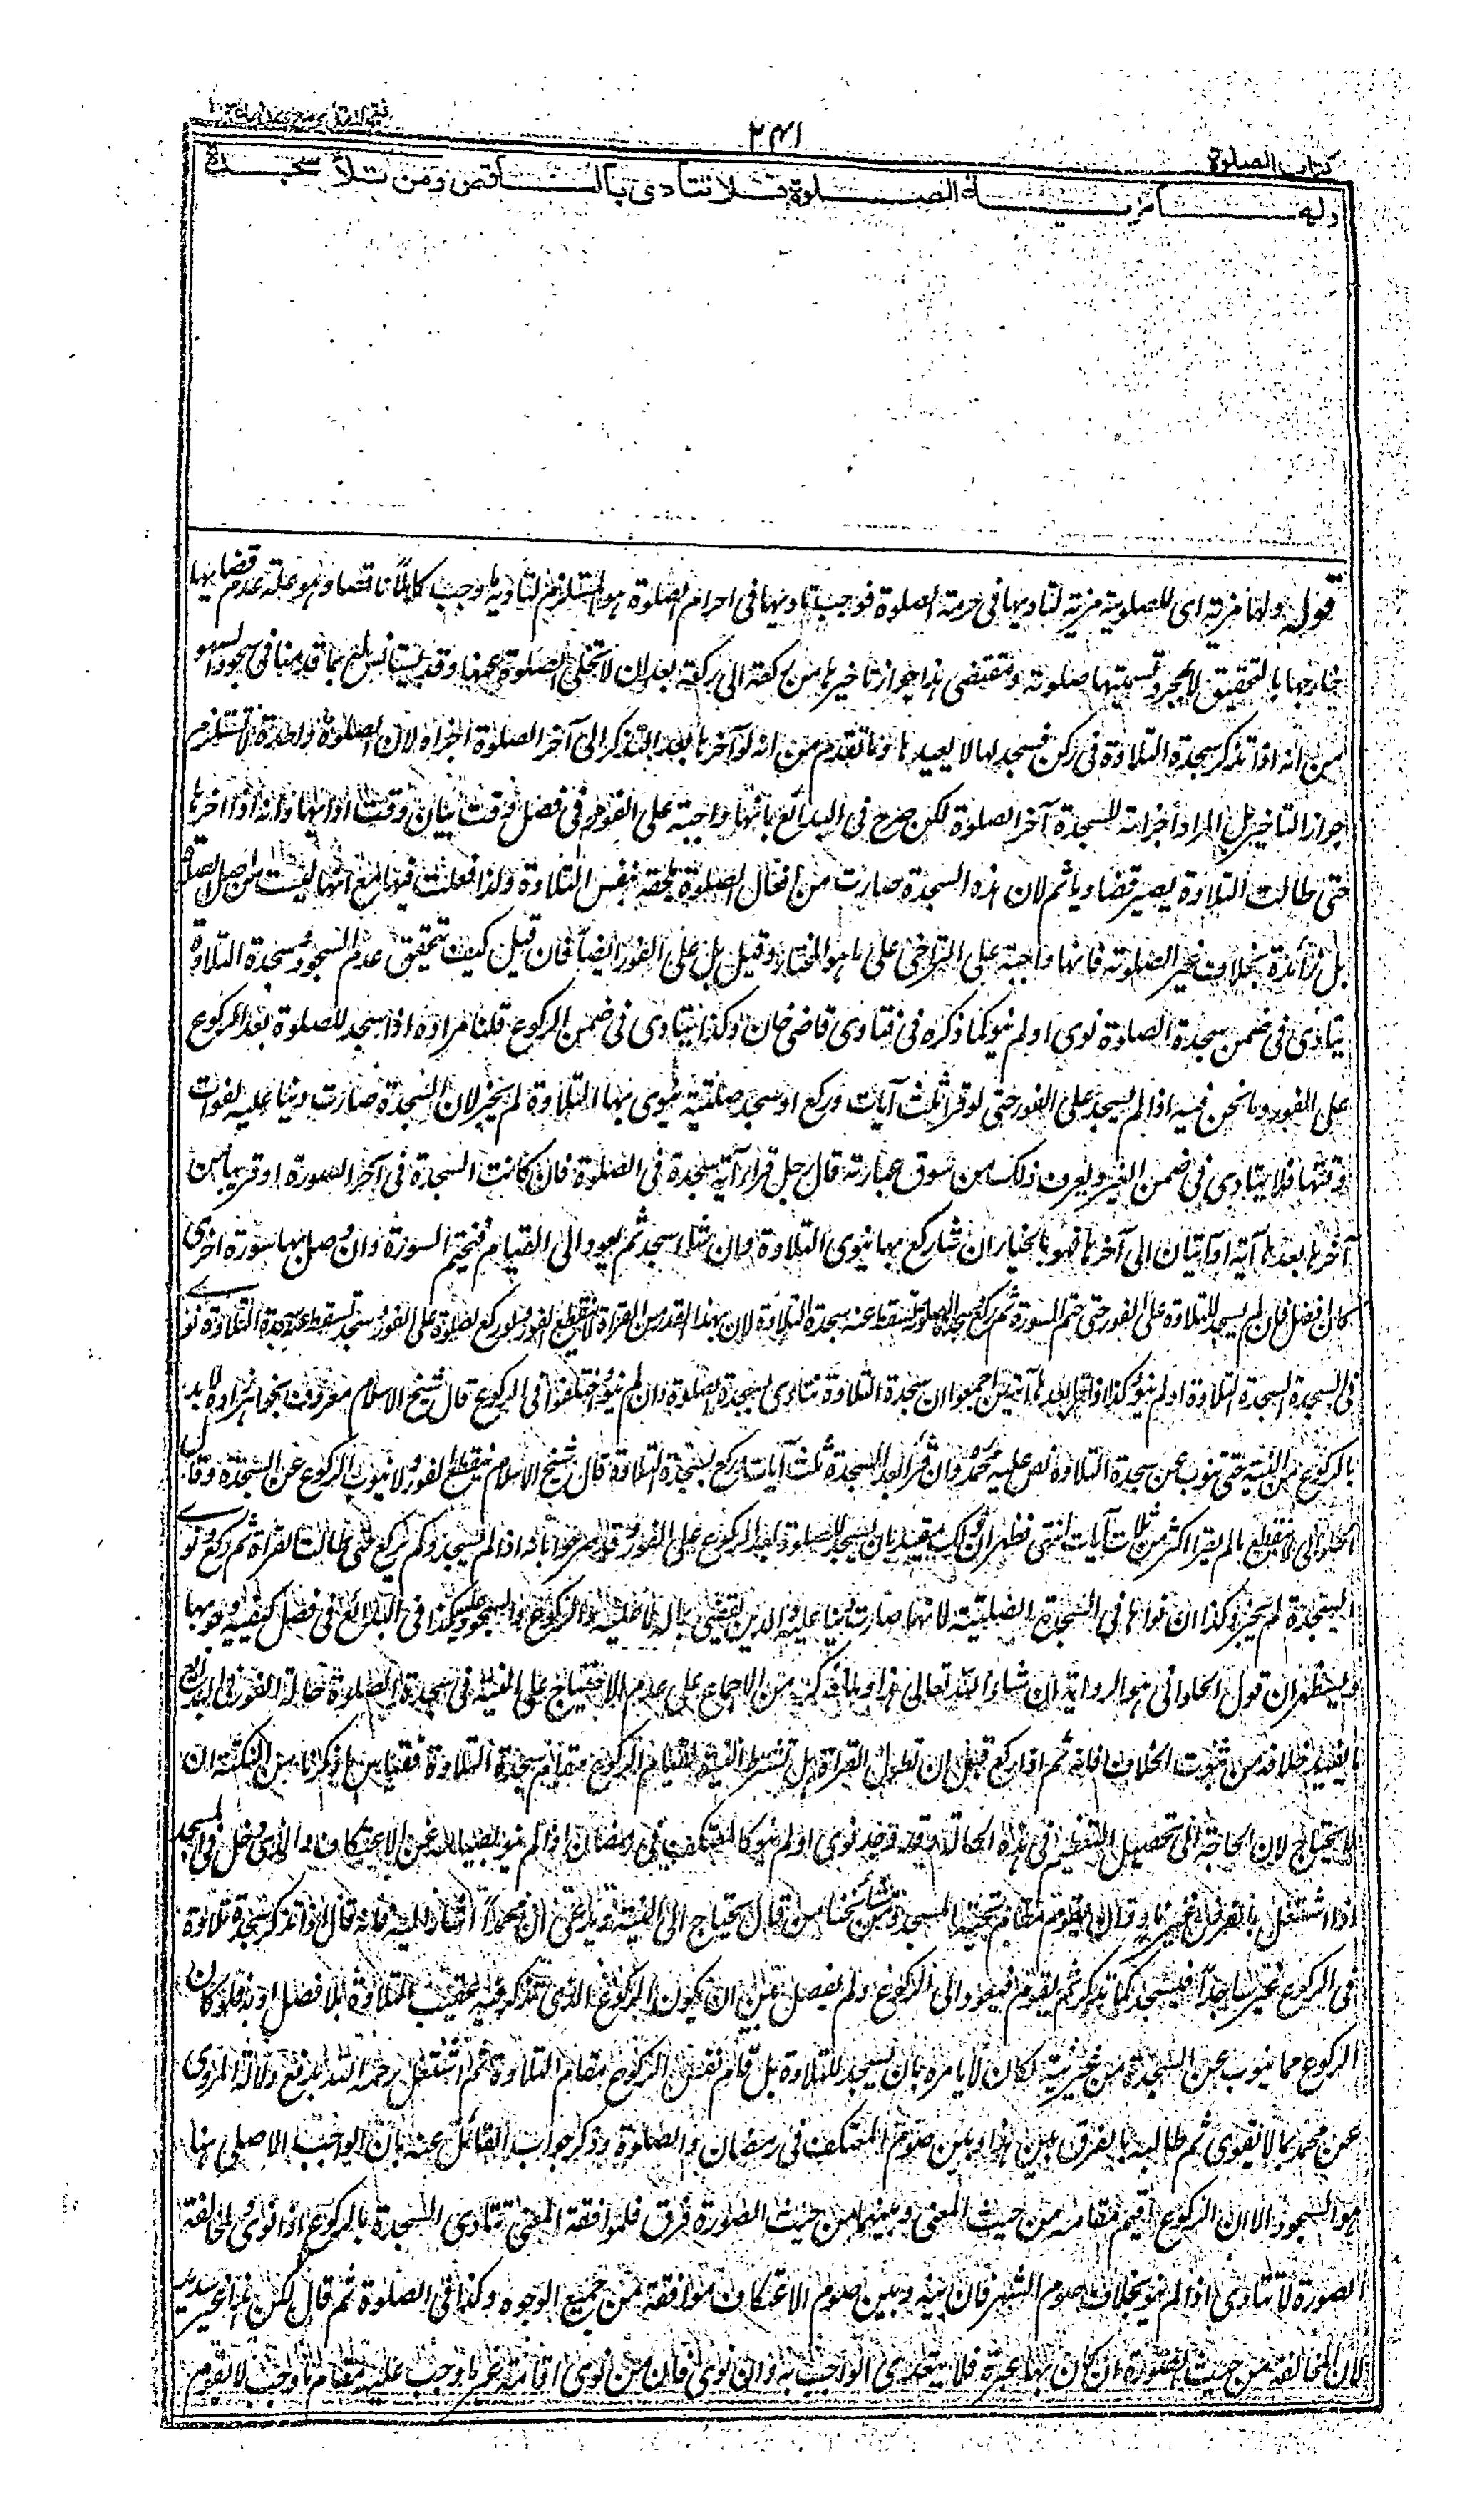 كتاب الصلوة
٢٣١
ولها مزية الصلوة فلا تتأدى بالناقص ومن تلا سجدة
قوله ولها مزية اى للصلوية مزية لتاديها فى حرمة الصلوة فوجب تاديها فى احرام الصلوة هو المستلزم لتاديه ما وجب كاملا ناقصا وهو علة عدم قضايها
خارجها بالتحقيق لا مجرد تسميتها صلوتية ومقتضى هذا جواز تاخيرها من ركعة الى ركعة بعد ان لا تخلى الصلوة عنها وقد يستانس له بما قدمنا فى سجود السهو
من انه اذا تذكر سجدة التلاوة فى ركن فسجد لها لا يعيده وما تقدم من انه لو آخرها بعد التذكر الى آخر الصلوة اجزاه لان الصلوة واحدة لا تستلزم
جواز التاخير بل المراد اجزات السجدة آخر الصلوة لكن صرح فى البدائع بانها واجبة على الفور فى فصل وقت بيان وقت ادايها وانه اذا اخرها
حتى طالت التلاوة يصير قضا وياثم لان هذه السجدة صارت من افعال الصلوة ملحقة بنفس التلاوة ولذا فعلت فيها مع انها ليست من اصل الصلوة
بل زائدة بخلاف غير الصلوتية فانها واجبة على التراخى على ما هو المختار وقيل بل على الفور ايضا فان قيل كيف يتحقق عدم السجود وسجدة التلاوة
يتادى فى ضمن سجدة الصلاة نوى او لم ينو كما ذكره فى فتاوى قاضى خان وكذا يتادى فى ضمن الركوع قلنا مراده اذا سجد للصلوة بعد الركوع
على الفور وما نحن فيه اذا لم يسجد على الفور حتى لو قرا ثلث آيات وركع او سجد صلبية ينوى بها التلاوة لم يجز لان السجدة صارت دينا عليه لفوات
وقتها فلا يتادى فى ضمن الغير ويعرف ذلك من سوق عبارته قال رجل قرا آية سجدة فى الصلوة فان كانت السجدة فى آخر السورة او قريبا من
آخرها بعدها آية او آيتان الى آخرها فهو بالخيار ان شا ركع بها ينوى التلاوة وان شاء سجد ثم يعود الى القيام فيختم السورة وان وصل بها سورة اخرى
كان افضل فان لم يسجد للتلاوة على الفور حتى ختم السورة ثم ركع وسجد لصلوته تسقط عنه سجدة التلاوة لان بهذا القدر من القراءة لا ينقطع الفور ولو ركع لصلوة على الفور وسجد تسقط عنه سجدة التلاوة نوى
فى السجدة السجدة التلاوة او لم ينو وكذا اذا قرا بعدها آيتين اجمعوا ان سجدة التلاوة تتادى بسجدة الصلوة وان لم ينو واختلفوا فى الركوع قال شيخ الاسلام معروف بخواهر زاده لا بد
بالركوع من النية حتى ينوب عن سجدة التلاوة نص عليه محمد وان قرا بعد السجدة ثلث آيات وركع بسجدة التلاوة قال شيخ الاسلام ينقطع الفور ولا ينوب الركوع عن السجدة وقال
الحلوانى لا ينقطع ما لم يقرا اكثر من ثلاث آيات انتهى فظهر ان ذلك مقيد بان يسجد للصلوة بعد الركوع على الفور وقد صرحوا بانه اذا لم يسجد ولم يركع حتى طالت القراة ثم ركع ونوى
السجدة لم يجز وكذا ان نواها فى السجدة الصلبية لانها صارت دينا عليه والدين يقضى بماله لا بما عليه والركوع والسجود عليه هكذا فى البدائع فى فصل كيفية وجوبها
ويستظهر ان قول الحلوانى هو الرواية ان شاء الله تعالى هذا وما ذكر من الاجماع على عدم الاحتياج على النية فى سجدة الصلوة حالة الفور فى البدائع
ما يفيد خلافه من ثبوت الخلاف فانه ثم اذا ركع قبل ان تطول القراة هل تشترط النية لقيام الركوع مقام سجدة التلاوة فقياس ما ذكرنا من النكتة ان
لا يحتاج لان الحاجة الى تحصيل التعظيم فى هذه الحالة وقد وجد نوى او لم ينو كالمعتكف فى رمضان اذا لم ينو بصيامه عن الاعتكاف والذى دخل فى المسجد
اذا اشتغل بالفرض غير ناو وقال يقوم مقام تحية المسجد ومن مشائخنا من قال يحتاج الى النية ويدعى ان محمدا اشار اليه فانه قال اذا تذكر سجدة تلاوة
فى الركوع يخر ساجدا فيسجد كما تذكر ثم يقوم فيعود الى الركوع ولم يفصل بين ان يكون الركوع الذى تذكر فيه عقيب التلاوة بلا فصل او به فلو كان
الركوع مما ينوب عن السجدة من غير نية لكان لا يامره بان يسجد للتلاوة بل قام نفس الركوع مقام التلاوة ثم اشتغل رحمه الله بدفع دلالة المروى
عن محمد بما لا يقوى ثم طالبه بالفرق بين هذا وبين صوم المعتكف فى رمضان والصلوة وذكر جواب القائل عنه بان الواجب الاصلى هنا
هو السجود الا ان الركوع اقيم مقامه من حيث المعنى وبينهما من حيث الصورة فرق فلموافقة المعنى تتادى السجدة بالركوع اذا نوى ولمخالفة
الصورة لا تتادى اذا لم ينو بخلاف صوم الشهر فان بينه وبين صوم الاعتكاف موافقة من جميع الوجوه وكذا فى الصلوة ثم قال لكن هذا غير سديد
لان المخالفة من حيث الصورة ان كان بها عبرة فلا يتادى الواجب به وان نوى فان من نوى اقامة غير ما وجب عليه مقام ما وجب لا يقوم